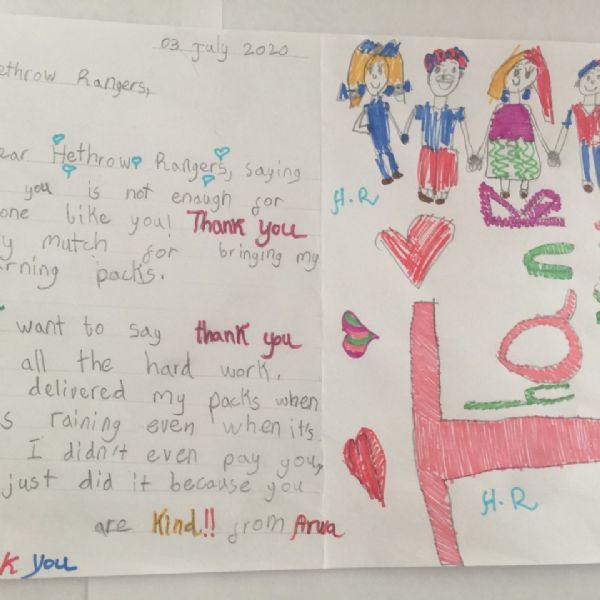 03 July 2020
ethrow Rangers,
ear Hethrow Rangers, saying
you is not enough for
one like you! Thank you
y mutch for bringing my
rning packs.
want to say thank you
all the hard work.
delivered my packs when
s raining even when it's
I didn't even pay you,
just did it because you
are Kind!! from Arwa
k you
H.R
Thank
H.R